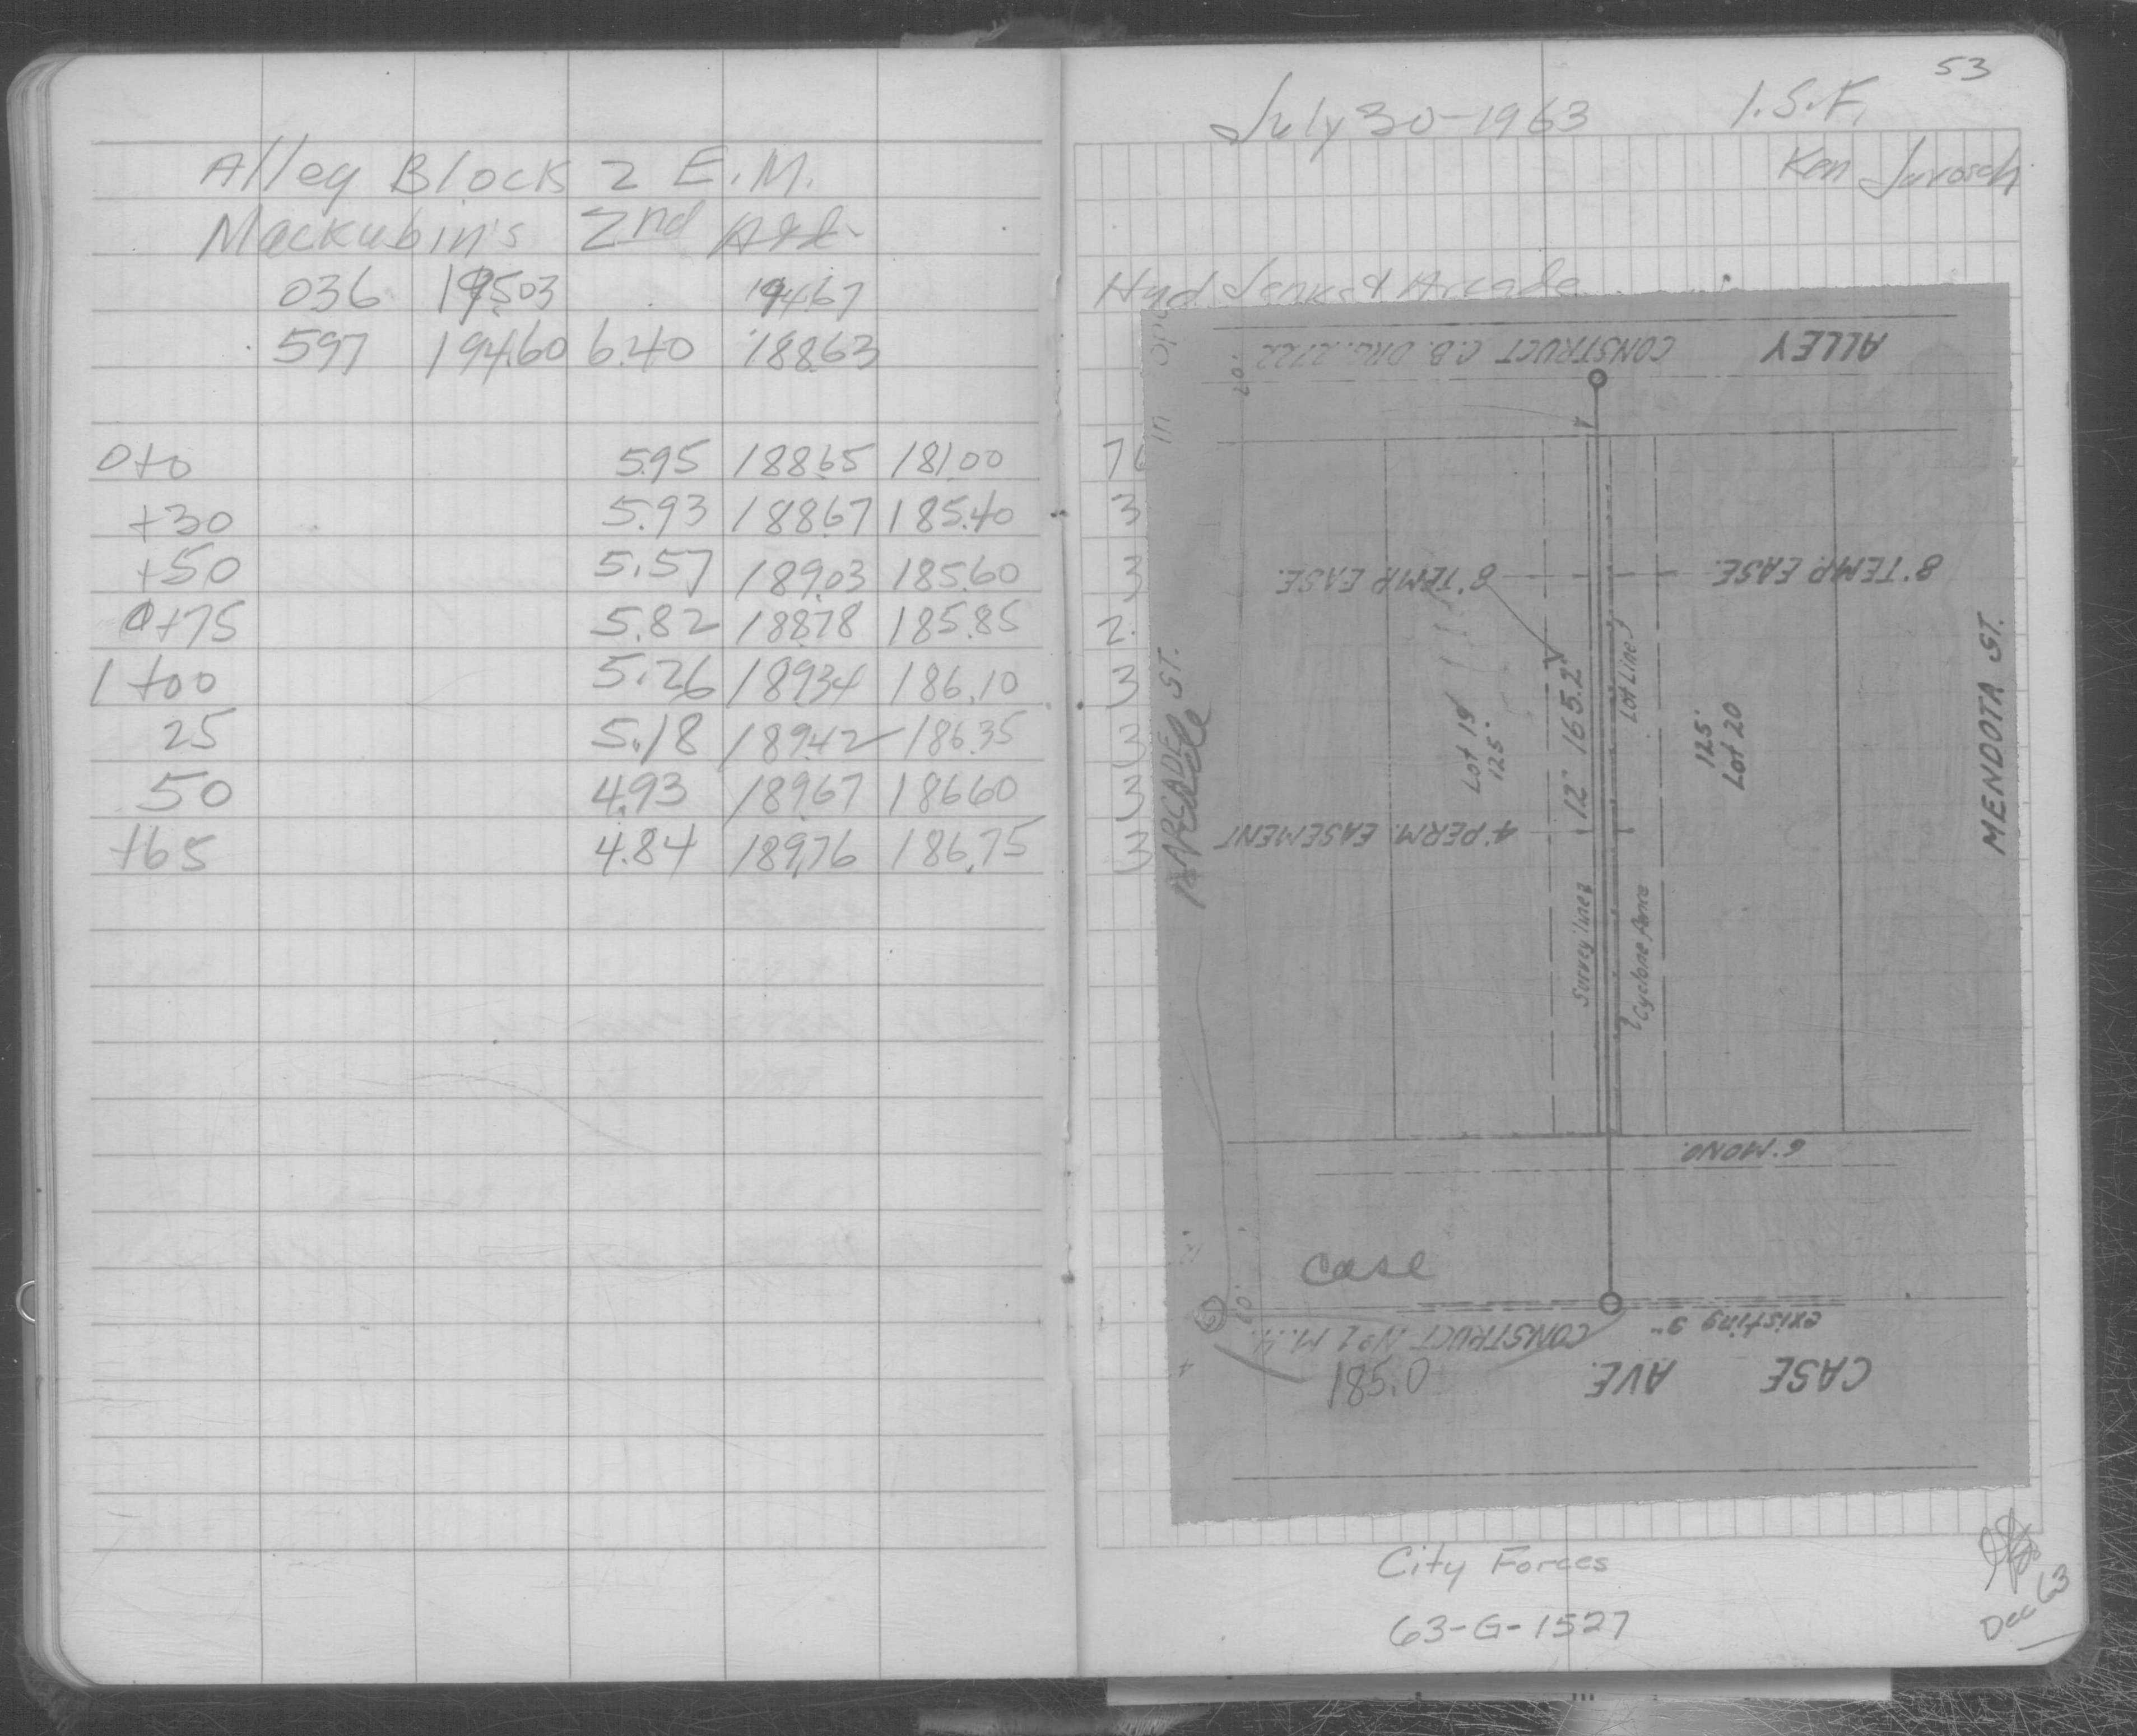 Alley Block 2 E.M.
Mackubin's 2nd Add.
036 195.03 194.67
597 194.60 6.40 188.63
0+0 5.95 188.65 181.00
+30 5.93 188.67 185.40
+50 5.57 189.03 185.60
0+75 5.82 188.78 185.85
1+00 5.26 189.34 186.10
25 5.18 189.42 186.35
50 4.93 189.67 186.60
+65 4.84 189.76 186.75
53
July 30-1963 I.S.F.
Ken Jurosch
Hyd Jenks & Arcade
in
7
3
3
2.
3
3
3
3
ALLEY
CONSTRUCT C.B. DRG. 2722
20'
8' TEMP. EASE.
8' TEMP. EASE.
ARCADE ST.
Arcade
Lot 19
125'
12" 165.2'
Lot Line
125'
Lot 20
MENDOTA ST.
4' PERM. EASEMENT
Survey line
Cyclone fence
6' MONO.
Case
60'
existing 9"
CONSTRUCT No 1 M.H.
185.0
CASE AVE.
City Forces
63-G-1527
Dec 63